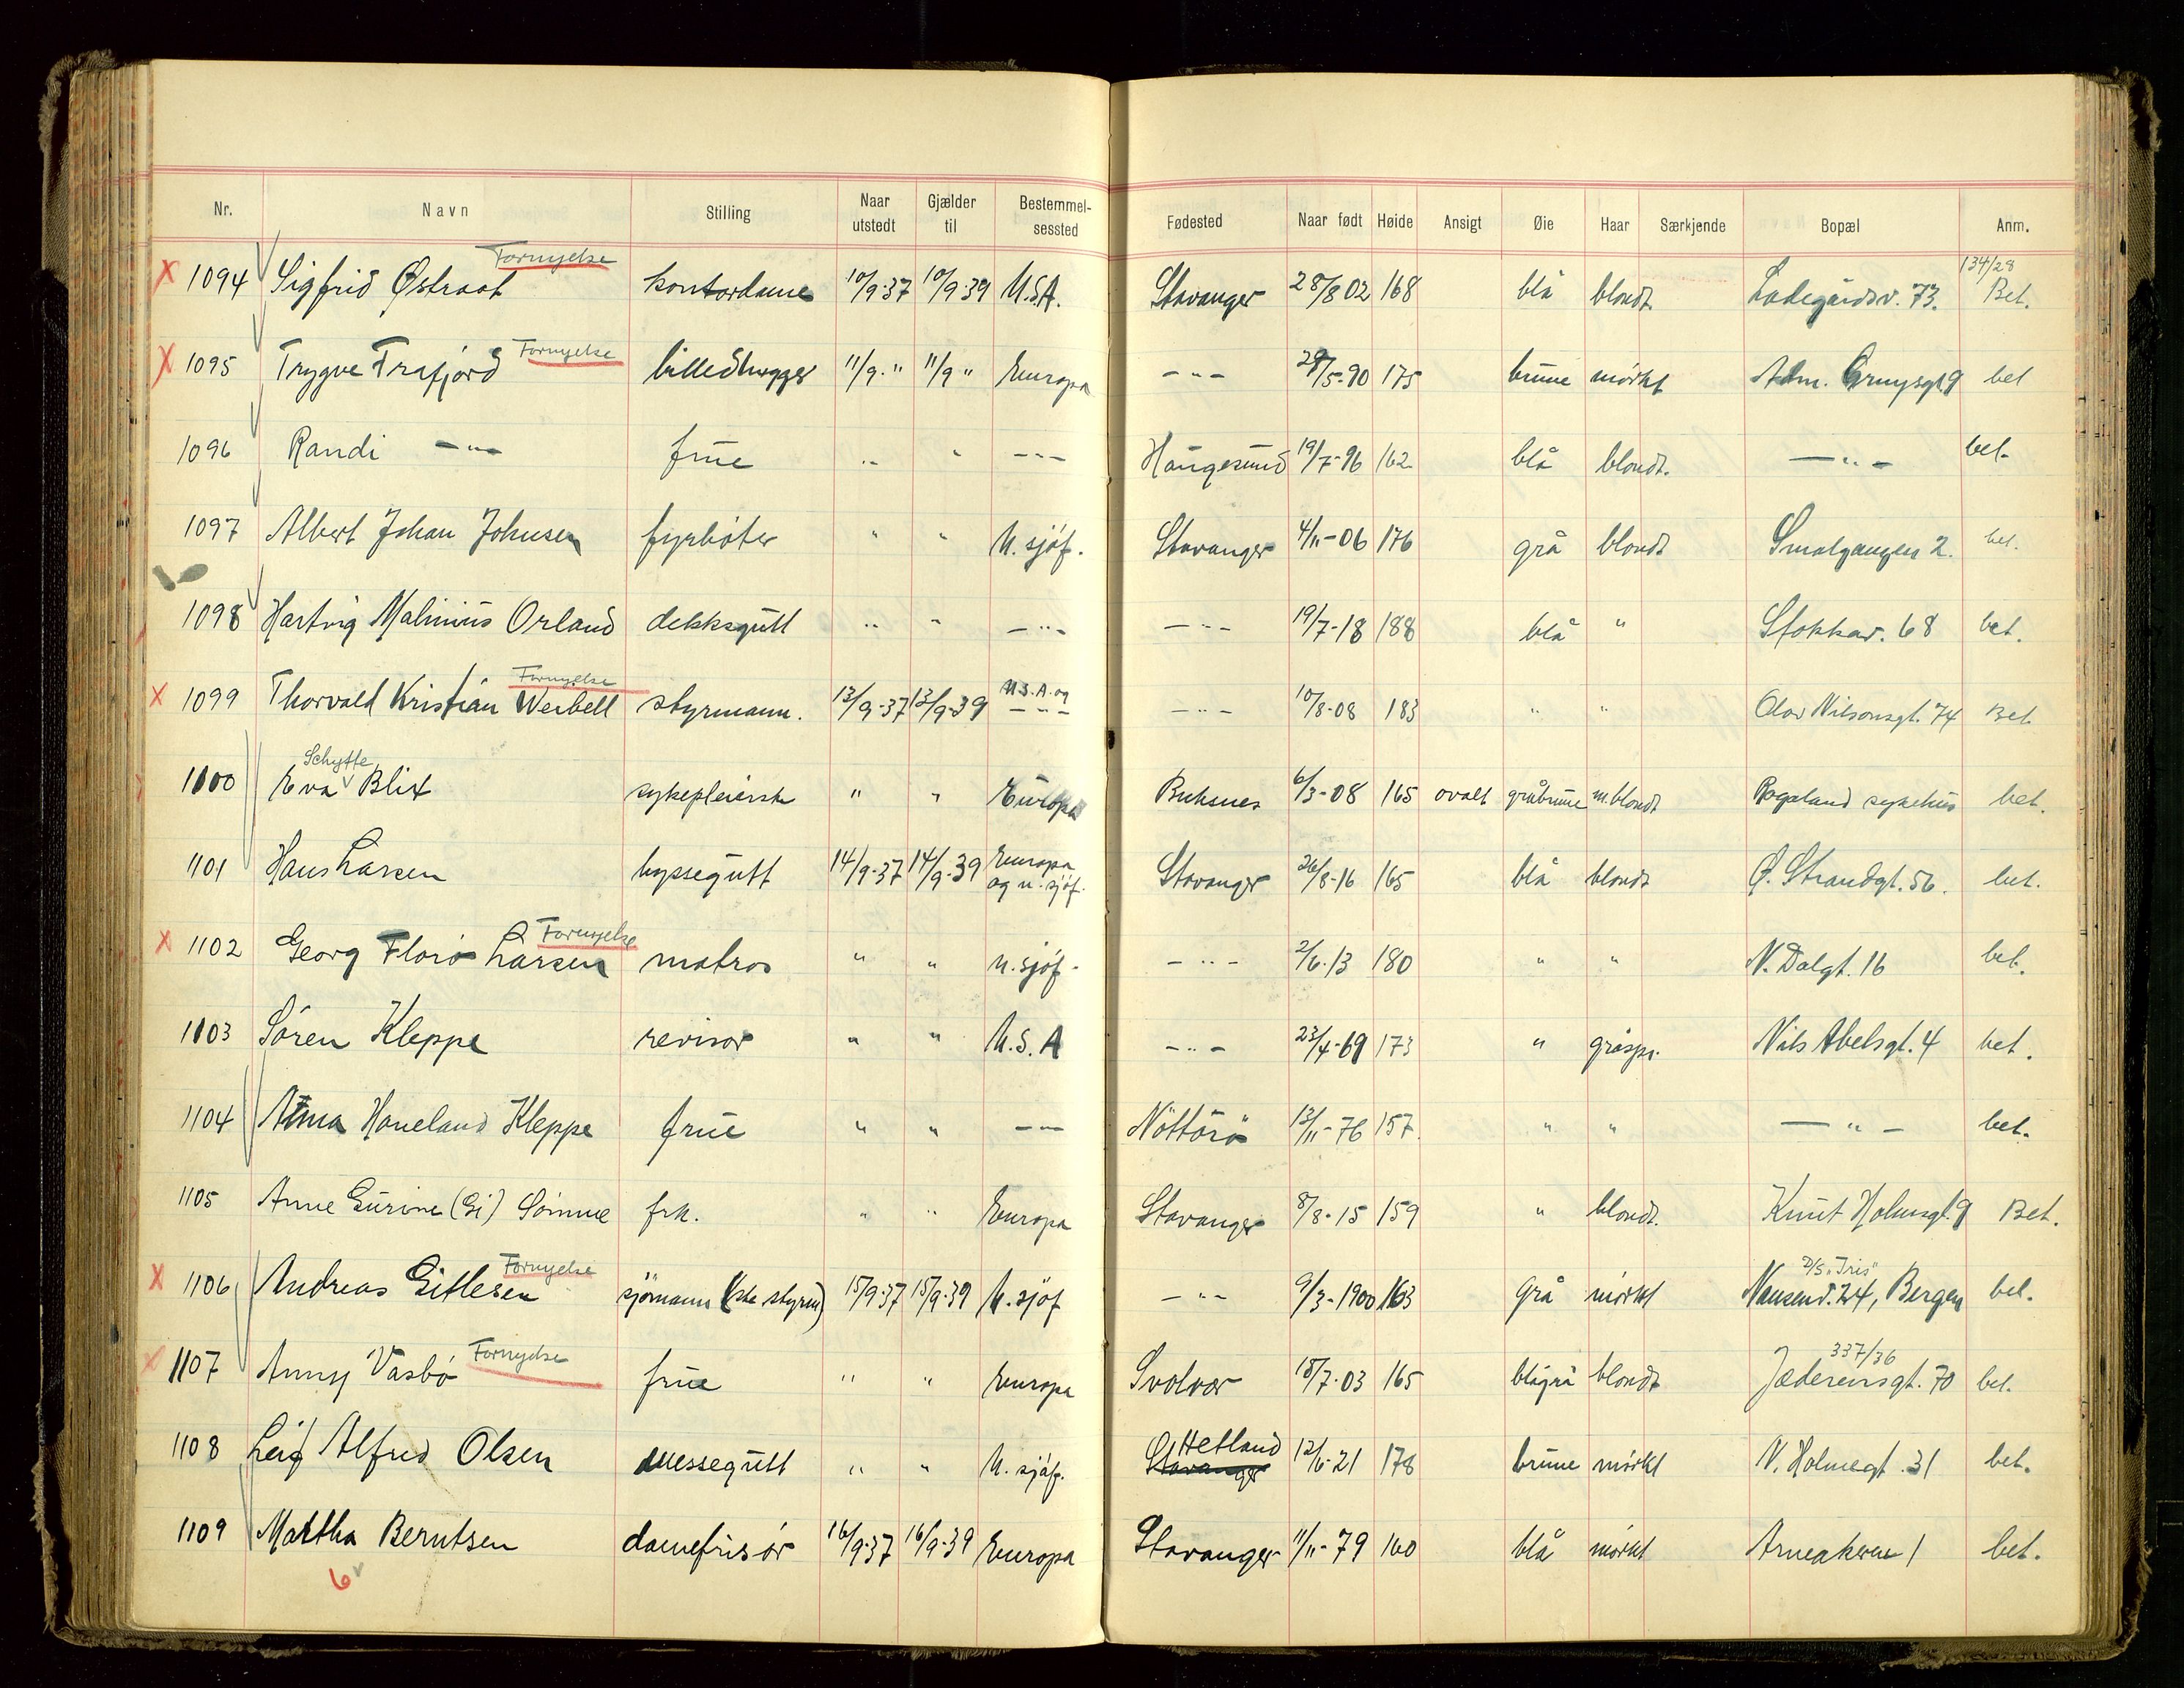 Nr. Navn Stilling Naar utstedt Gjælder til Bestemmelsessted Fødested Naar født Høide Ansigt Øie Haar Særkjende Bopæl Anm.
Fornyelse 134/28
X 1094 Sigfrid Østraat kontordame 10/9-37 10/9-39 U.S.A. Stavanger 28/8 02 168 blå blondt. Ladegårdsv. 73. Bet.
X 1095 Trygve Frafjord Fornyelse billedhugger 11/9-" 11/9 " Europa -"- 29/5-90 175 brune mørkt Adm. Cruysgt 9 bet
1096 Randi -"- frue " " -"- Haugesund 19/7-96 162 blå blondt. -"- bet.
1097 Albert Johan Johnsen fyrbøter " " U. sjøf. Stavanger 4/11-06 176 grå blondt Smalgangen 2. bet.
1098 Hartvig Malinius Orland dekksgutt " " -"- -"- 19/7-18 188 blå " Stokkav. 68 bet.
Fornyelse
X 1099 Thorvald Kristian Weibell styrmann. 13/9-37 13/9-39 U.S.A. og -"- -"- 10/8-08 183 " " Olav Nilsonsgt. 74 Bet.
Schytte
1100 Eva Blix sykepleierske " " Europa Buksnes 6/3-08 165 ovalt gråbrune m.blondt Rogaland sykehus bet.
1101 Hans Larsen byssegutt 14/9-37 14/9-39 Europa og u. sjøf. Stavanger 26/8-16 165 blå blondt Ø. Strandgt. 56. bet.
Fornyelse
X 1102 Georg Florø Larsen matros " " U. sjøf. -"- 2/6-13 180 " " N. Dalgt. 16 bet.
1103 Søren Kleppe revisor " " U.S.A -"- 23/4-69 173 " gråspr. Nils Abelsgt. 4 bet.
1104 Anna Haneland Kleppe frue " " -"- Nøtterø 13/11-76 157. " " -"- bet.
1105 Anne Gurine (Gi) Sømme frk. " " Europa Stavanger 8/8-15 159 " blondt. Knut Holmsgt. 9 Bet.
Fornyelse D/S "Iris"
X 1106 Andreas Gitlesen sjømann (1ste styrm) 15/9-37 15/9-39 U. sjøf -"- 9/3-1900 163 grå mørkt Nansenv. 24, Bergen bet.
Fornyelse 337/36
X 1107 Anny Vasbø frue " " Europa Svolvær 18/7-03 165 blågrå blondt Jæderensgt. 70 bet.
1108 Leif Alfred Olsen messegutt " " U. sjøf. Stavanger Hetland 12/6-21 178 brune mørkt N. Holmegt. 31 bet.
1109 Martha Berntsen damefrisør 16/9-37 16/9-39 Europa Stavanger 11/11-79 160 blå mørkt Arneakeren 1 bet.
6